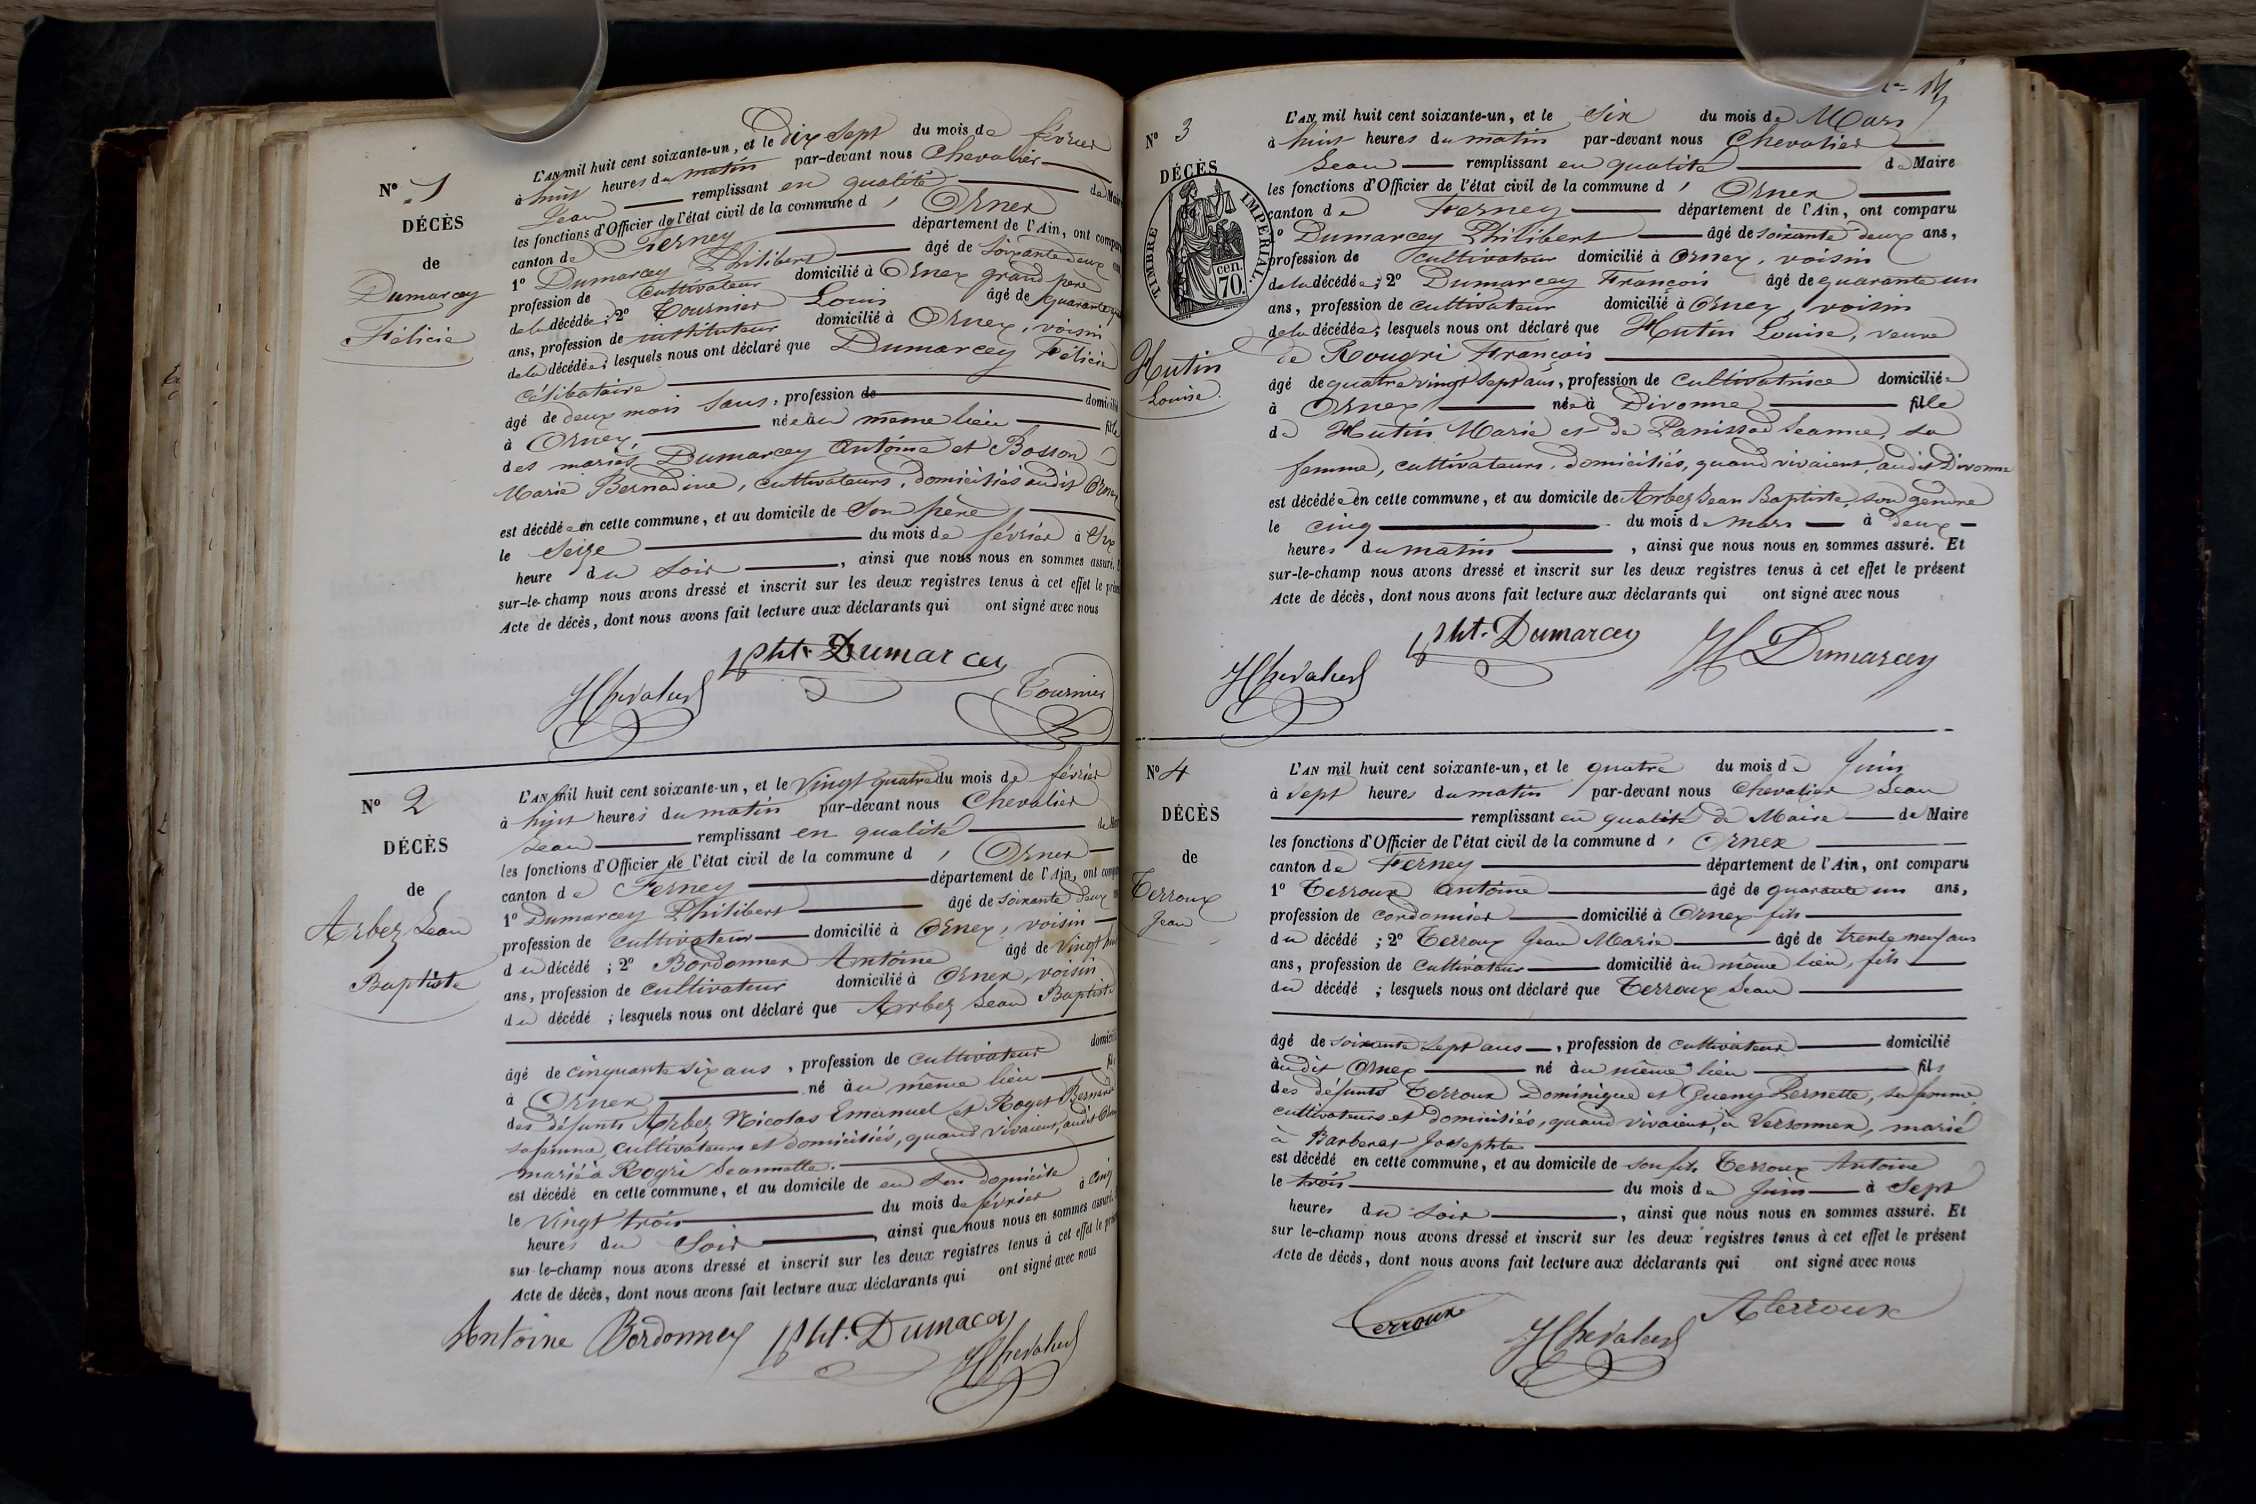 N° 1
DÉCÈS
de
Dumarcey
Félicie
L'AN mil huit cent soixante-un, et le Dix Sept du mois de février
à huit heures du matin par-devant nous Chevalier
Jean remplissant en qualité de Maire
les fonctions d'Officier de l'état civil de la commune d' Ornex
canton de Ferney département de l'Ain, ont comparu
1° Dumarcey Philibert âgé de soixante deux ans
profession de Cultivateur domicilié à Ornex grand père
de la décédée; 2° Tournier Louis âgé de quarante
ans, profession de instituteur domicilié à Ornex, voisin
de la décédée; lesquels nous ont déclaré que Dumarcey Félicie
célibataire
âgé de deux mois sans, profession de domicilié
à Ornex, née au même lieu fille
des mariés Dumarcey Antoine et Bosson
Marie Bernadine, cultivateurs, domiciliés audit Ornex
est décédée en cette commune, et au domicile de son père
le Seize du mois de février à Six
heure du Soir, ainsi que nous nous en sommes assuré. Et
sur-le-champ nous avons dressé et inscrit sur les deux registres tenus à cet effet le présent
Acte de décès, dont nous avons fait lecture aux déclarants qui ont signé avec nous
Pht. Dumarcey
JChevalier
Tournier
N° 2
DÉCÈS
de
Arbez Jean
Baptiste
L'AN mil huit cent soixante-un, et le Vingt quatre du mois de février
à huit heures du matin par-devant nous Chevalier
Jean remplissant en qualité de Maire
les fonctions d'Officier de l'état civil de la commune d' Ornex
canton de Ferney département de l'Ain, ont comparu
1° Dumarcey Philibert âgé de soixante deux
profession de cultivateur domicilié à Ornex, voisin
du décédé; 2° Bordonnex Antoine âgé de vingt huit
ans, profession de cultivateur domicilié à Ornex, voisin
du décédé; lesquels nous ont déclaré que Arbez Jean Baptiste
âgé de cinquante six ans, profession de cultivateur domicilié
à Ornex né au même lieu fils
des défunts Arbez Nicolas Emanuel et Roget Bernarde
sa femme, cultivateurs et domiciliés, quand vivaient, audit Ornex
marié à Rogri Jeannette.
est décédé en cette commune, et au domicile de en son domicile
le vingt trois du mois de février à Cinq
heures du Soir, ainsi que nous nous en sommes assuré.
sur-le-champ nous avons dressé et inscrit sur les deux registres tenus à cet effet le présent
Acte de décès, dont nous avons fait lecture aux déclarants qui ont signé avec nous
Antoine Bordonnex Pht. Dumacey
JChevalier
N° 3
DÉCÈS
TIMBRE IMPÉRIAL.
cen.
70.
Hutin
Louise.
L'AN mil huit cent soixante-un, et le Six du mois de Mars
à huit heures du matin par-devant nous Chevalier
Jean remplissant en qualité de Maire
les fonctions d'Officier de l'état civil de la commune d' Ornex
canton de Ferney département de l'Ain, ont comparu
1° Dumarcey Philibert âgé de soixante deux ans,
profession de cultivateur domicilié à Ornex, voisin
de la décédée; 2° Dumarcey François âgé de quarante un
ans, profession de cultivateur domicilié à Ornex, voisin
de la décédée; lesquels nous ont déclaré que Hutin Louise, veuve
de Rougri François
âgé de quatre vingt sept ans, profession de cultivatrice domiciliée
à Ornex née à Divonne fille
de Hutin Marie et de Panissod Jeanne, sa
femme, cultivateurs, domiciliés, quand vivaient, audit Divonne
est décédée en cette commune, et au domicile de Arbez Jean Baptiste, son gendre
le cinq du mois de mars à deux
heures du matin, ainsi que nous nous en sommes assuré. Et
sur-le-champ nous avons dressé et inscrit sur les deux registres tenus à cet effet le présent
Acte de décès, dont nous avons fait lecture aux déclarants qui ont signé avec nous
Pht. Dumarcey
JChevalier
Dumarcey
N° 4
DÉCÈS
de
Terroux
Jean
L'AN mil huit cent soixante-un, et le quatre du mois de Juin
à Sept heures du matin par-devant nous Chevalier Jean
remplissant en qualité de Maire de Maire
les fonctions d'Officier de l'état civil de la commune d' Ornex
canton de Ferney département de l'Ain, ont comparu
1° Terroux Antoine âgé de quarante un ans,
profession de cordonnier domicilié à Ornex fils
du décédé; 2° Terroux Jean Marie âgé de trente neuf ans
ans, profession de cultivateur domicilié au même lieu, fils
du décédé; lesquels nous ont déclaré que Terroux Jean
âgé de soixante sept ans, profession de cultivateur domicilié
audit Ornex né au même lieu fils
des défunts Terroux Dominique et Gueny Pernette, sa femme
cultivateurs et domiciliés, quand vivaient, à Versonnex, marié
à Barberat Josephte
est décédé en cette commune, et au domicile de son fils Terroux Antoine
le trois du mois de Juin à Sept
heures du Soir, ainsi que nous nous en sommes assuré. Et
sur le-champ nous avons dressé et inscrit sur les deux registres tenus à cet effet le présent
Acte de décès, dont nous avons fait lecture aux déclarants qui ont signé avec nous
Terroux
JChevalier
ATerroux